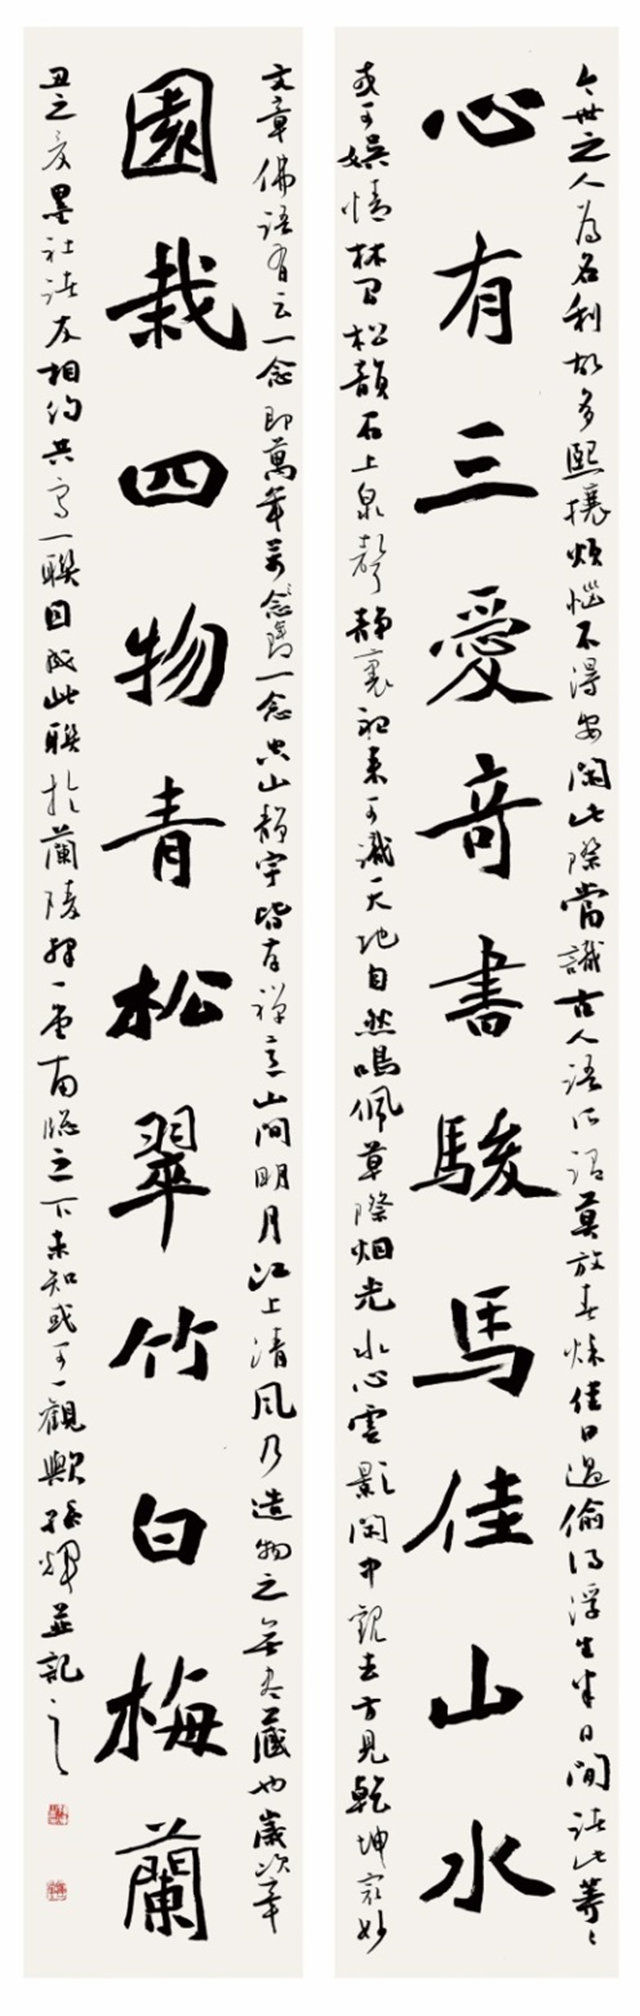 今世之人為名利故多熙攘煩惱不得安閑此際當識古人語所謂莫放春秋佳日過偷得浮生半日閒諸此等等
心有三愛奇書駿馬佳山水
或可娛情林間松韻石上泉聲靜裏聽來可識天地自然鳴佩草際烟光水心雲影閑中觀去方見乾坤最妙
文章佛語有云一念即萬年萬念歸一念空山靜宇皆有禪意山間明月江上清風乃造物之無盡藏也歲次辛
園栽四物青松翠竹白梅蘭
丑之夏墨社諸友相約共寫一聯因成此聯於蘭陵南窗之下未知或可一觀歟並記之